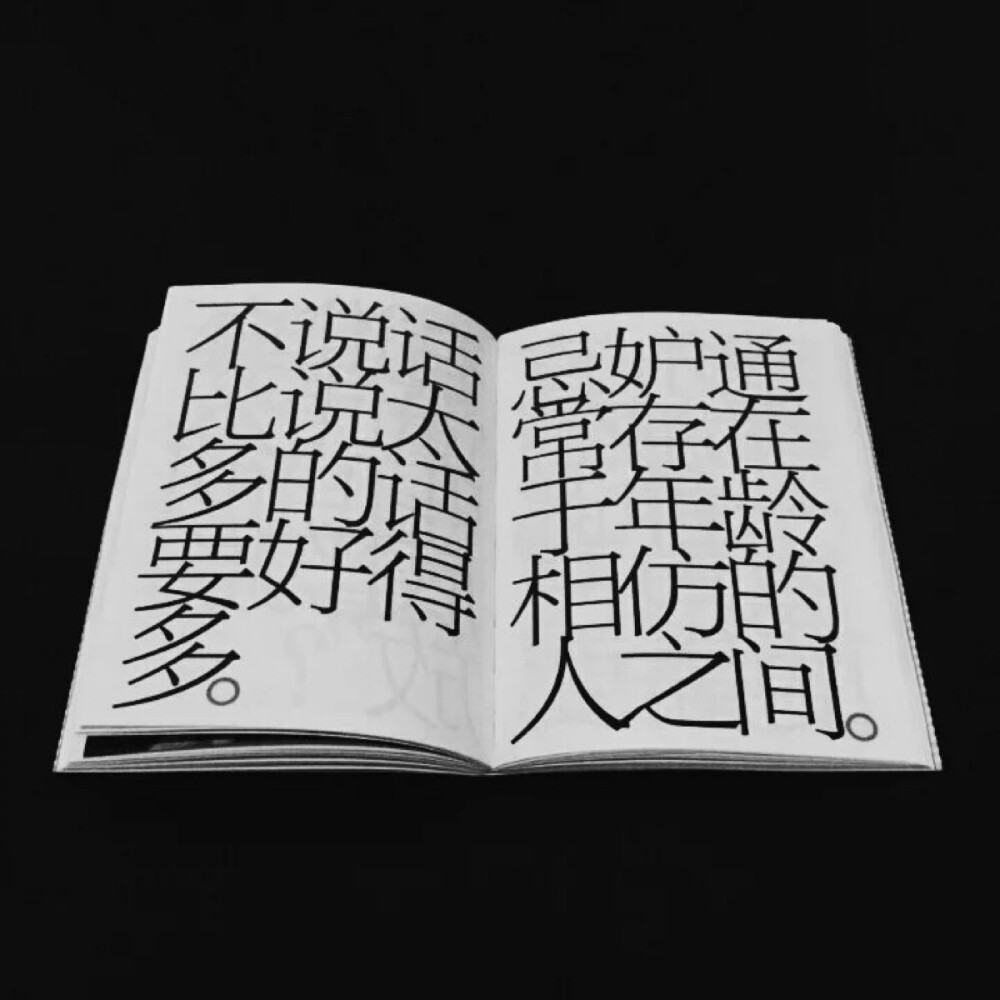 不说话
比说太
多的话
要好得
多多。
忌妒通
常存在
于年龄
相仿的
人之间。